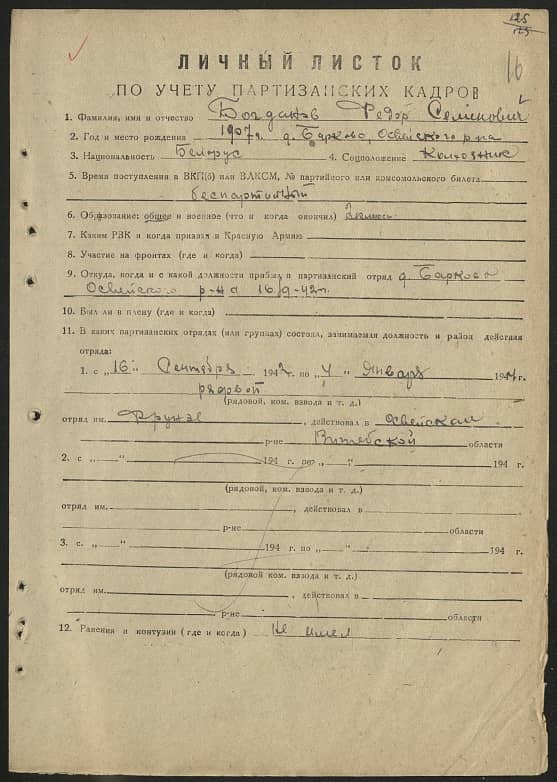 125
16
ЛИЧНЫЙ ЛИСТОК
ПО УЧЕТУ ПАРТИЗАНСКИХ КАДРОВ
1. Фамилия, имя и отчество Богданов Федор Семенович
2. Год и место рождения 1907г. д. Барково, Освейского р-на
3. Национальность Белорус 4. Соцположение Колхозник
5. Время поступления в ВКП(б) или ВЛКСМ, № партийного или комсомольского билета
беспартийный
6. Образование: общее и военное (что и когда окончил)
7. Каким РВК и когда призван в Красную Армию
8. Участие на фронтах (где и когда)
9. Откуда, когда и с какой должности прибыл в партизанский отряд д. Барково
Освейского р-на 16/9-42г.
10. Был ли в плену (где и когда)
11. В каких партизанских отрядах (или группах) состоял, занимаемая должность и район действия
отряда:
1. с „16" Сентября 1942 г. по „4" Января 1944 г.
рядовой
(рядовой, ком. взвода и т. д.)
отряд им. Фрунзе, действовал в Освейском
р-не Витебской области
2. с „ " 194 г. по „ " 194 г.
(рядовой, ком. взвода и т. д.)
отряд им. , действовал в
р-не области
3. с „ " 194 г. по „ " 194 г.
(рядовой, ком. взвода и т. д.)
отряд им. , действовал в
р-не области
12. Ранения и контузии (где и когда) не имел